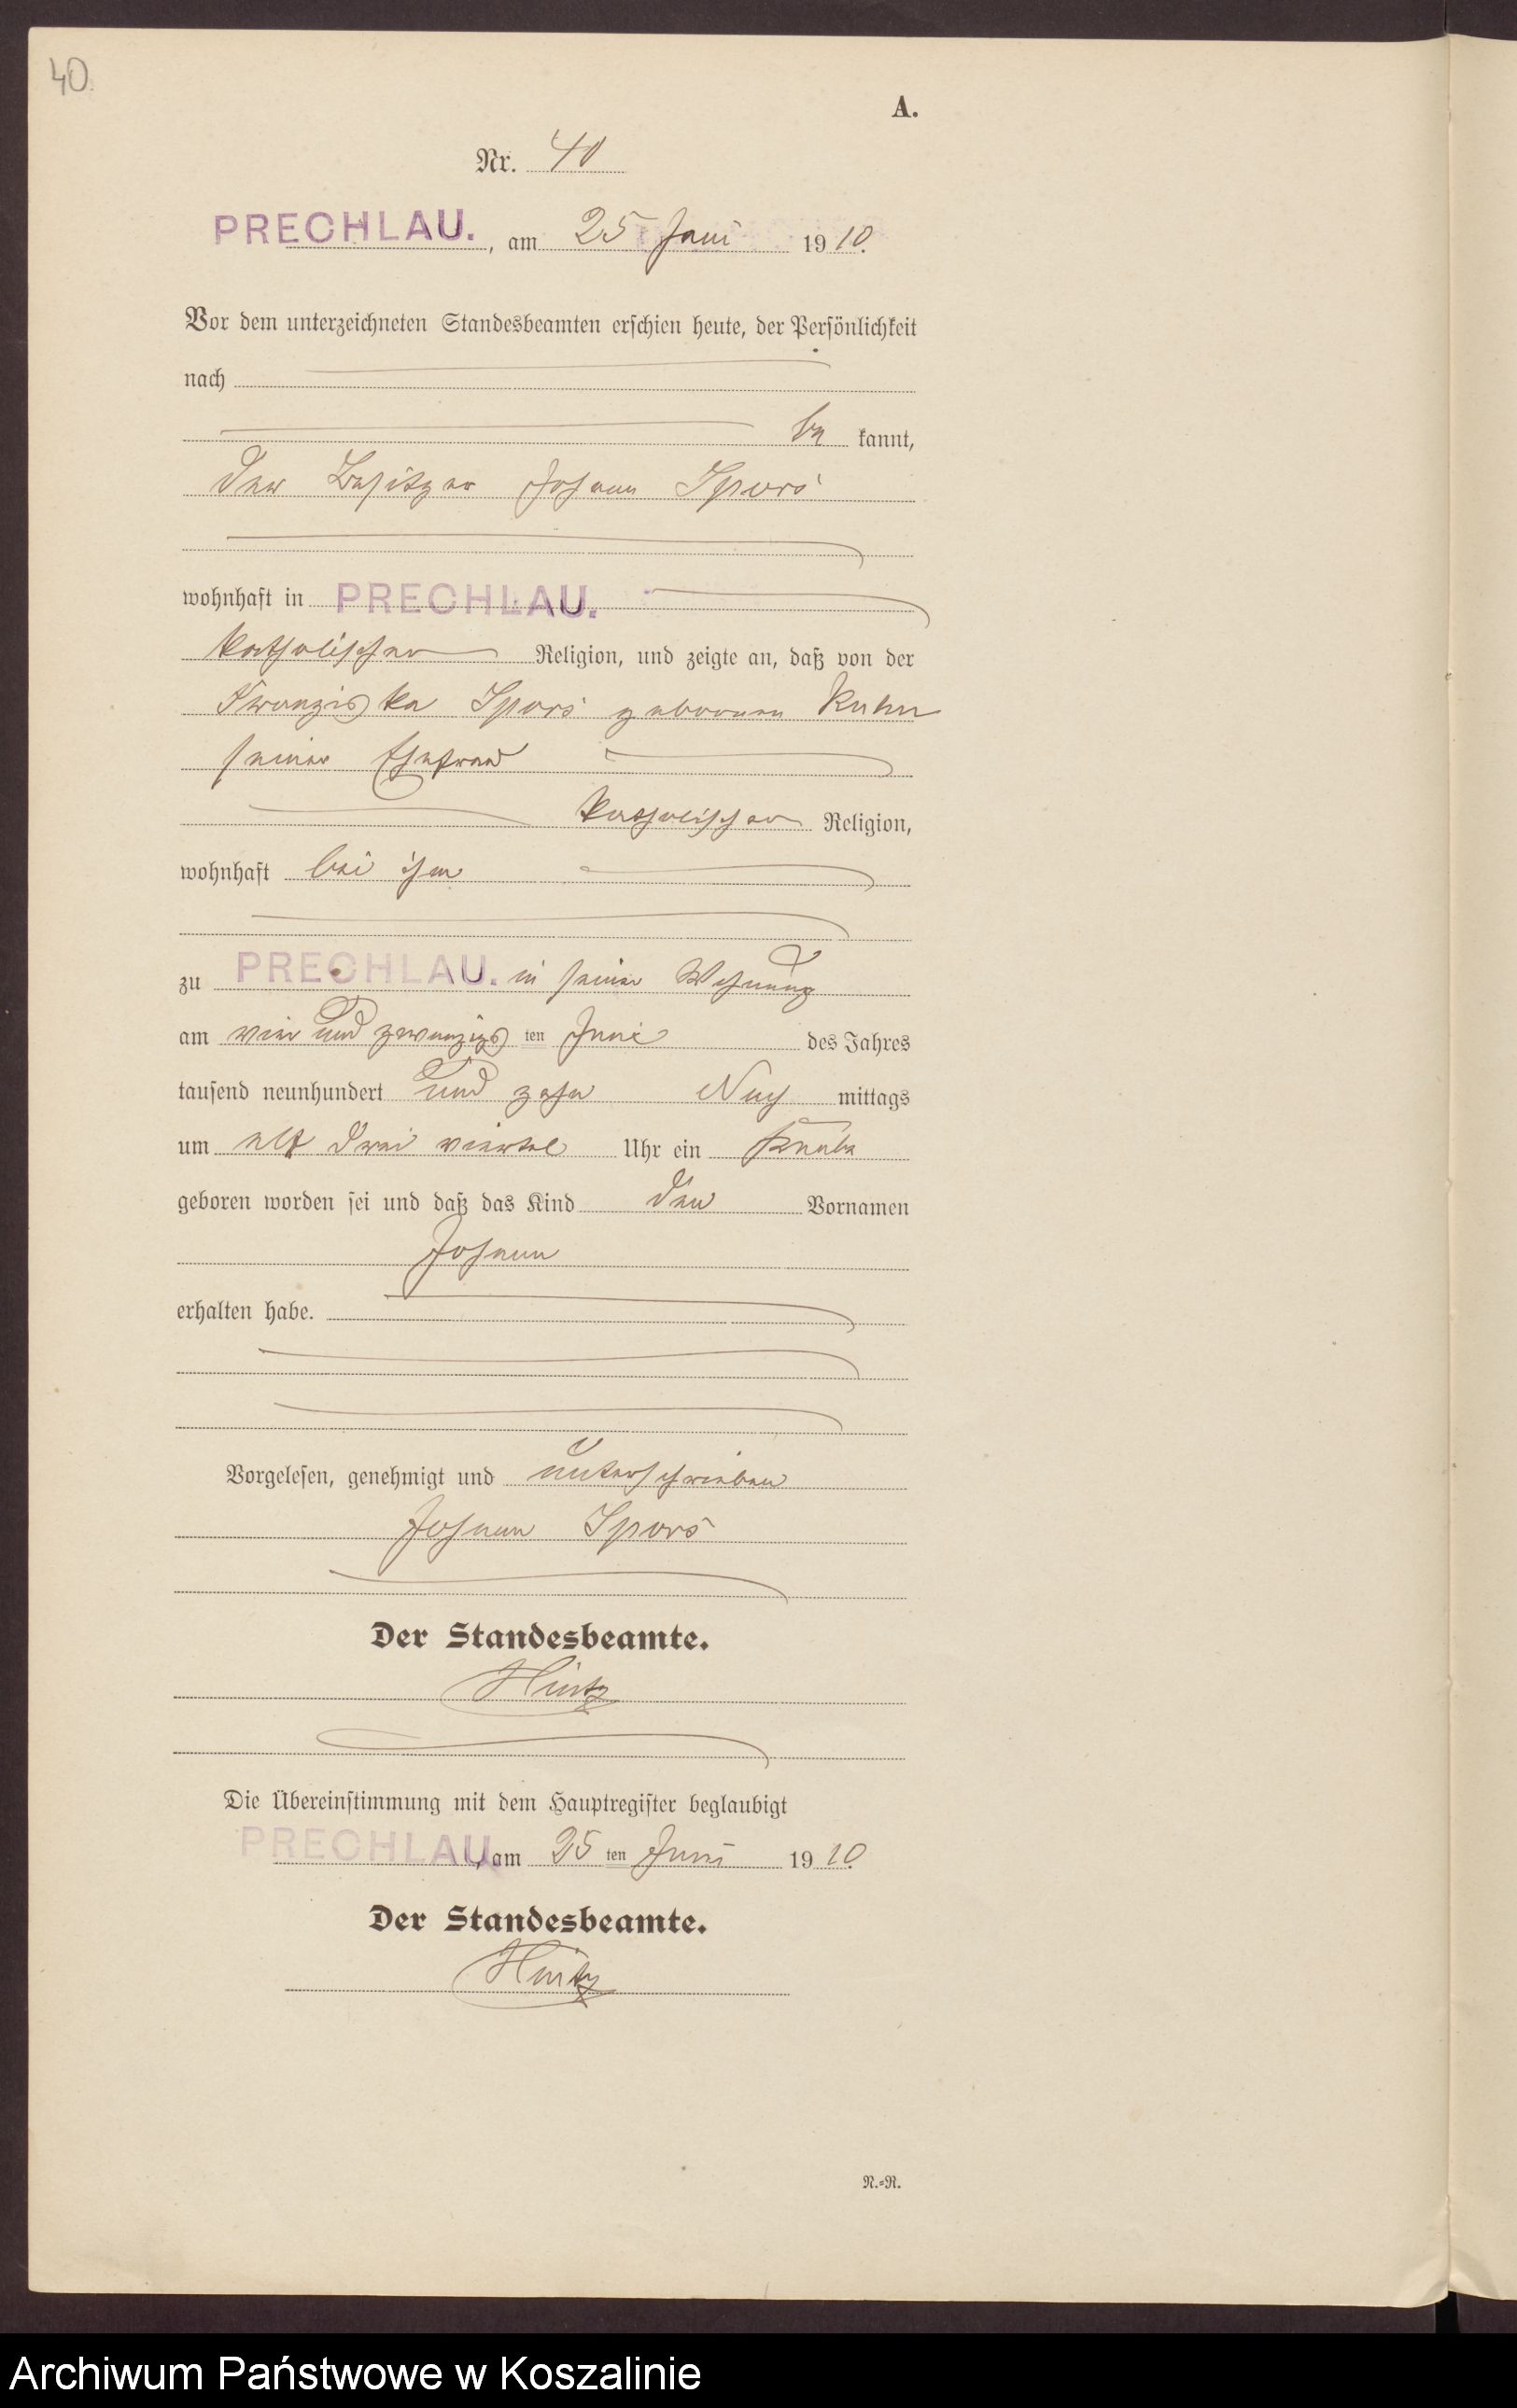 40
A.
Nr. 40
PRECHLAU. , am 25 Juni 1910.
Vor dem unterzeichneten Standesbeamten erschien heute, der Persönlichkeit
nach
be kannt,
der Besitzer Johann Spors
wohnhaft in PRECHLAU.
katholischer Religion, und zeigte an, daß von der
Franziska Spors geborenen Kuhn
seiner Ehefrau
katholischer Religion,
wohnhaft bei ihm
zu PRECHLAU. in seiner Wohnung
am vier und zwanzigs ten Juni des Jahres
tausend neunhundert und zehn Nach mittags
um elf drei viertel Uhr ein Knabe
geboren worden sei und daß das Kind den Vornamen
Johann
erhalten habe.
Vorgelesen, genehmigt und unterschrieben
Johann Spors
Der Standesbeamte.
Hintz
Die Übereinstimmung mit dem Hauptregister beglaubigt
PRECHLAU, am 25 ten Juni 1910.
Der Standesbeamte.
Hintz
N.=R.
Archiwum Państwowe w Koszalinie